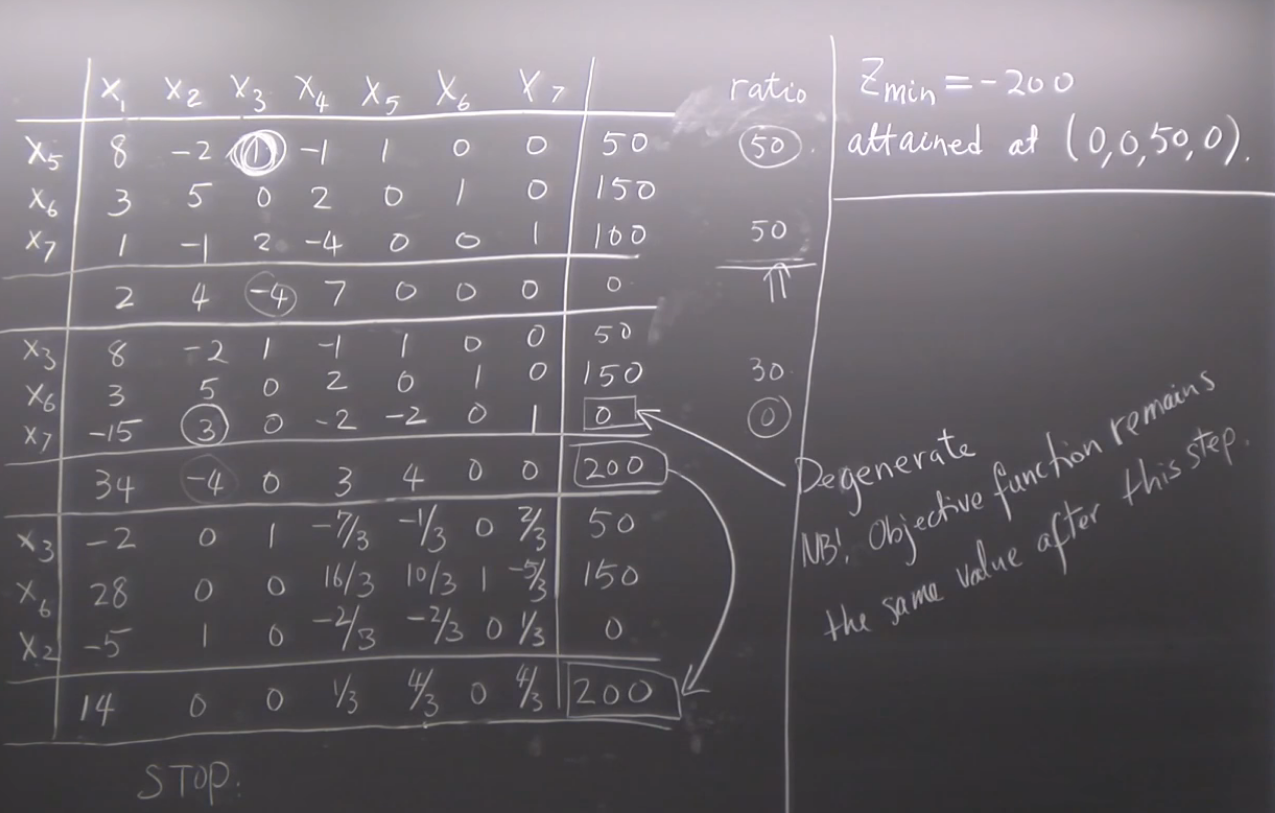 X₁ X₂ X₃ X₄ X₅ X₆ X₇ ratio
X₅ 8 -2 1 -1 1 0 0 50 50
X₆ 3 5 0 2 0 1 0 150
X₇ 1 -1 2 -4 0 0 1 100 50
2 4 -4 7 0 0 0 0
X₃ 8 -2 1 -1 1 0 0 50
X₆ 3 5 0 2 0 1 0 150 30
X₇ -15 3 0 -2 -2 0 1 0 0
34 -4 0 3 4 0 0 200
X₃ -2 0 1 -7/3 -1/3 0 2/3 50
X₆ 28 0 0 16/3 10/3 1 -5/3 150
X₂ -5 1 0 -2/3 -2/3 0 1/3 0
14 0 0 1/3 4/3 0 4/3 200
STOP.
Zmin = -200
attained at (0,0,50,0).
Degenerate
NB! Objective function remains
the same value after this step.